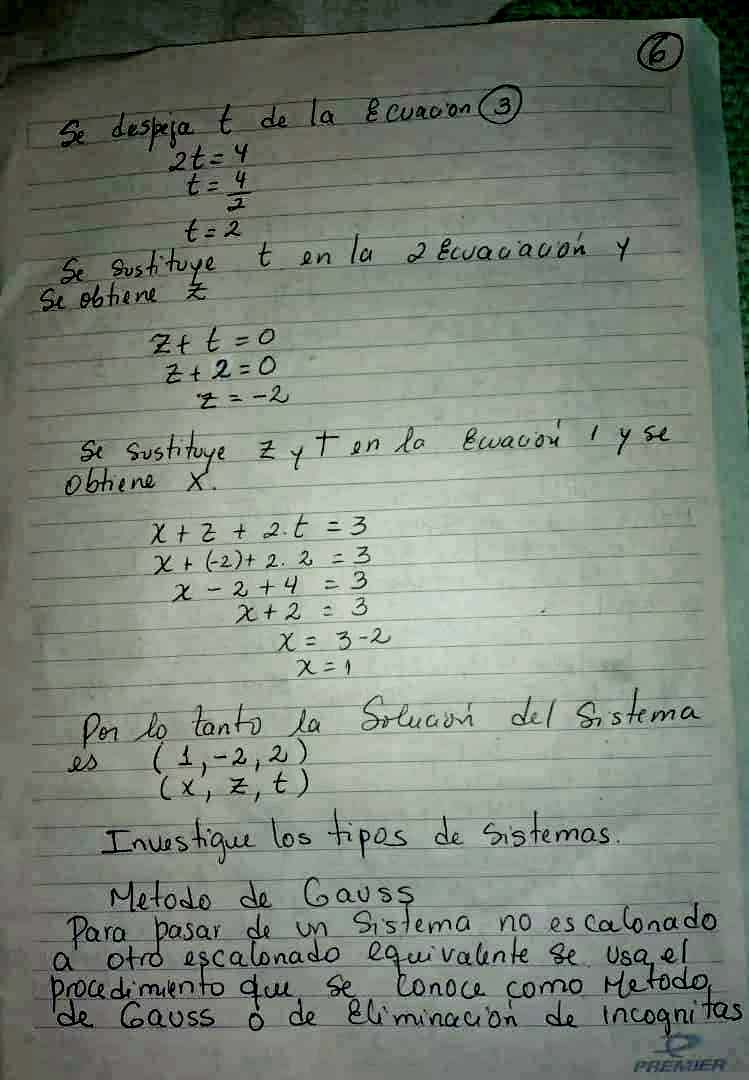 6
Se despeja t de la Ecuacion 3
2t = 4
t = 4/2
t = 2
Se sustituye t en la 2 Ecuaciación y
Se obtiene z
z + t = 0
z + 2 = 0
z = -2
Se sustituye z y t en la Ecuación 1 y se
Obtiene X.
x + z + 2.t = 3
x + (-2) + 2.2 = 3
x - 2 + 4 = 3
x + 2 = 3
x = 3-2
x = 1
Por lo tanto la Solución del Sistema
es (1, -2, 2)
(x, z, t)
Investigue los tipos de Sistemas.
Metodo de Gauss
Para pasar de un Sistema no escalonado
a otro escalonado equivalente se usa el
procedimiento que se conoce como Metodo
de Gauss o de Eliminación de incognitas
PREMIER